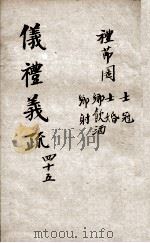 禮節圖
士冠
士婚
鄉飲酒
鄉射
儀禮義疏
四十五